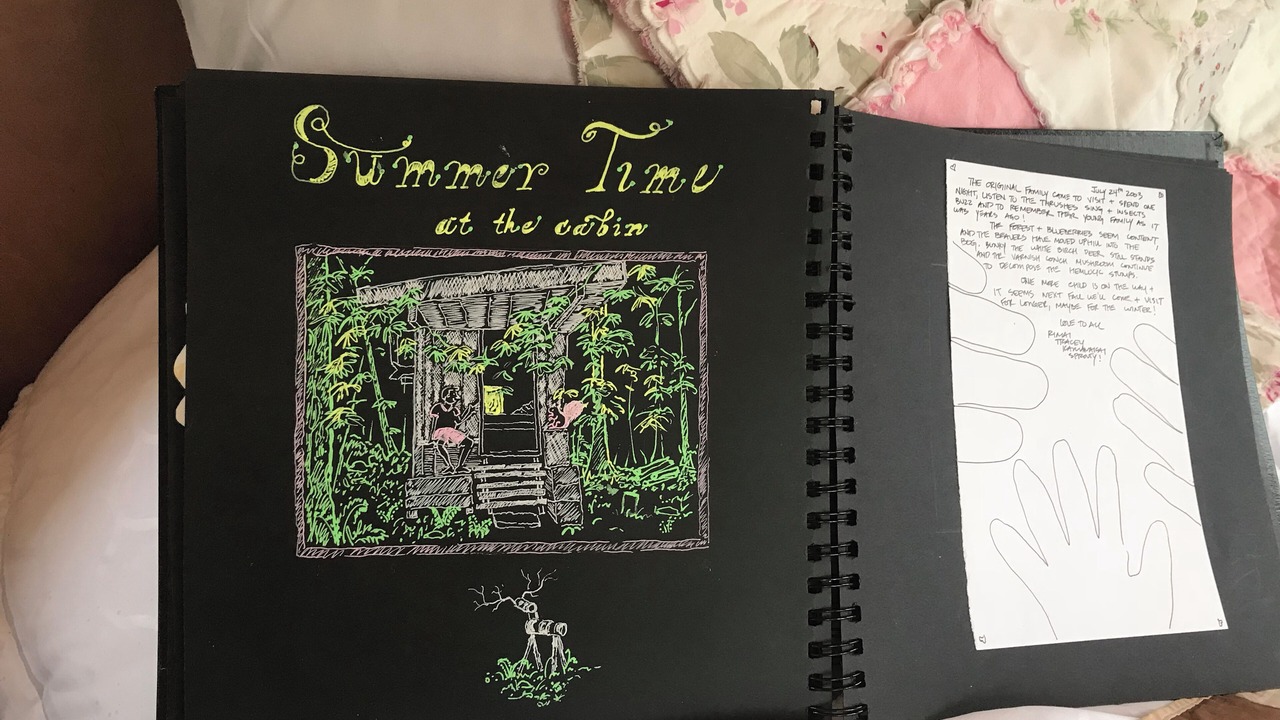 Summer Time
at the cabin
July 24th 2003
THE ORIGINAL FAMILY CAME TO VISIT + SPEND ONE
NIGHT, LISTEN TO THE THRUSHES SING + INSECTS
BUZZ AND TO REMEMBER THEIR YOUNG FAMILY AS IT
WAS YEARS AGO!
THE FOREST + BLUEBERRIES SEEM CONTENT
AND THE BEAVERS HAVE MOVED UPHILL INTO THE
BOG. THE WHITE BIRCH DEER STILL STANDS
AND THE VARNISH CONCH MUSHROOM CONTINUE
TO DECOMPOSE THE HEMLOCK STUMPS.
ONE MORE CHILD IS ON THE WAY +
IT SEEMS NEXT FALL WE'LL COME + VISIT
FOR LONGER, MAYBE FOR THE WINTER!
LOVE TO ALL
TRACEY